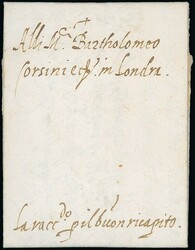 Alli M.ci Bartholomeo
Corsini e cp.i in Londra.
la racc.do p il buon ricapito.